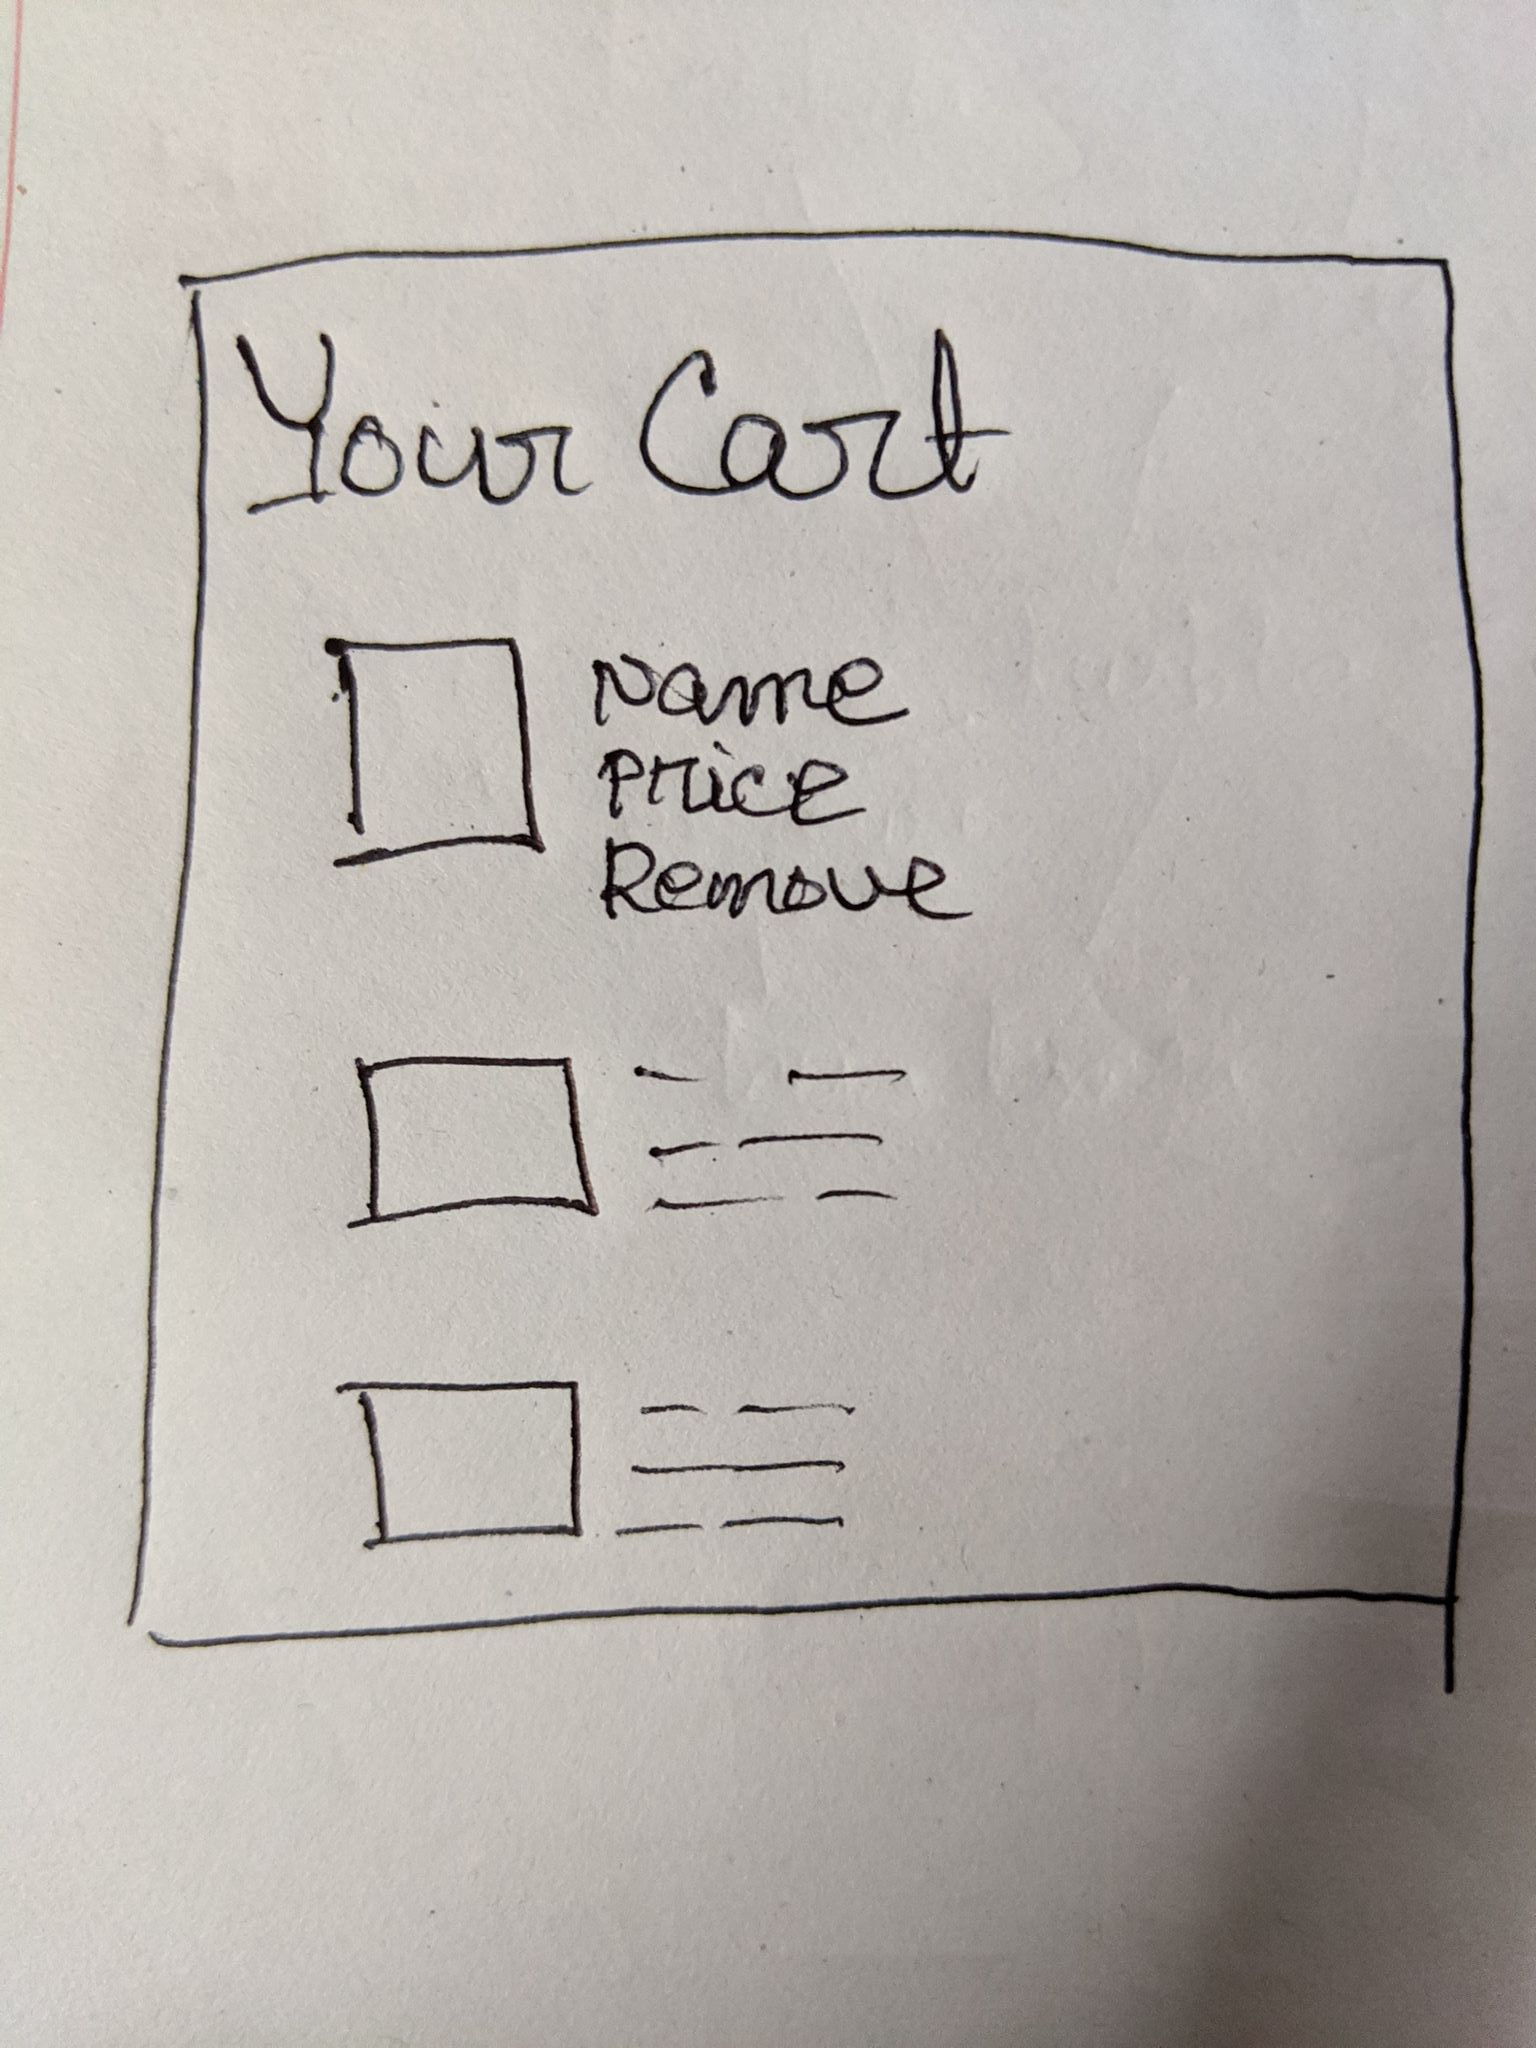 Your Cart
Name
Price
Remove